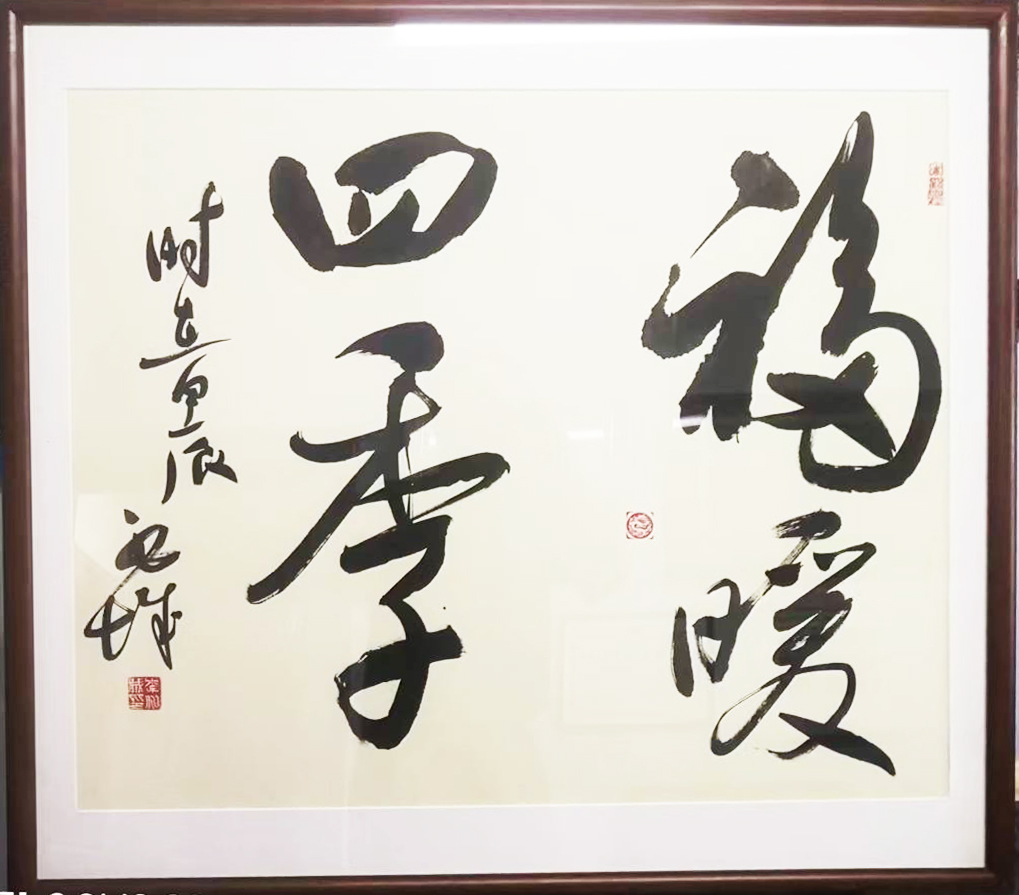 福暖
四季
时在甲辰